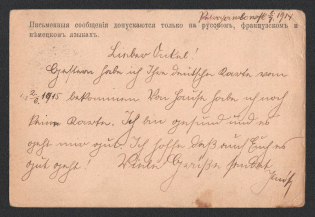 Письменныя сообщенія допускаются только на русскомъ, французскомъ и
нѣмецкомъ языкахъ.
Lieber Onkel!
Gestern habe ich Ihre deutsche Karte vom
1915 bekommen. Von Hause habe ich noch
keine Karte. Ich bin gesund und es
geht mir gut. Ich hoffe daß auch es
gut geht! Viele Grüße sendet